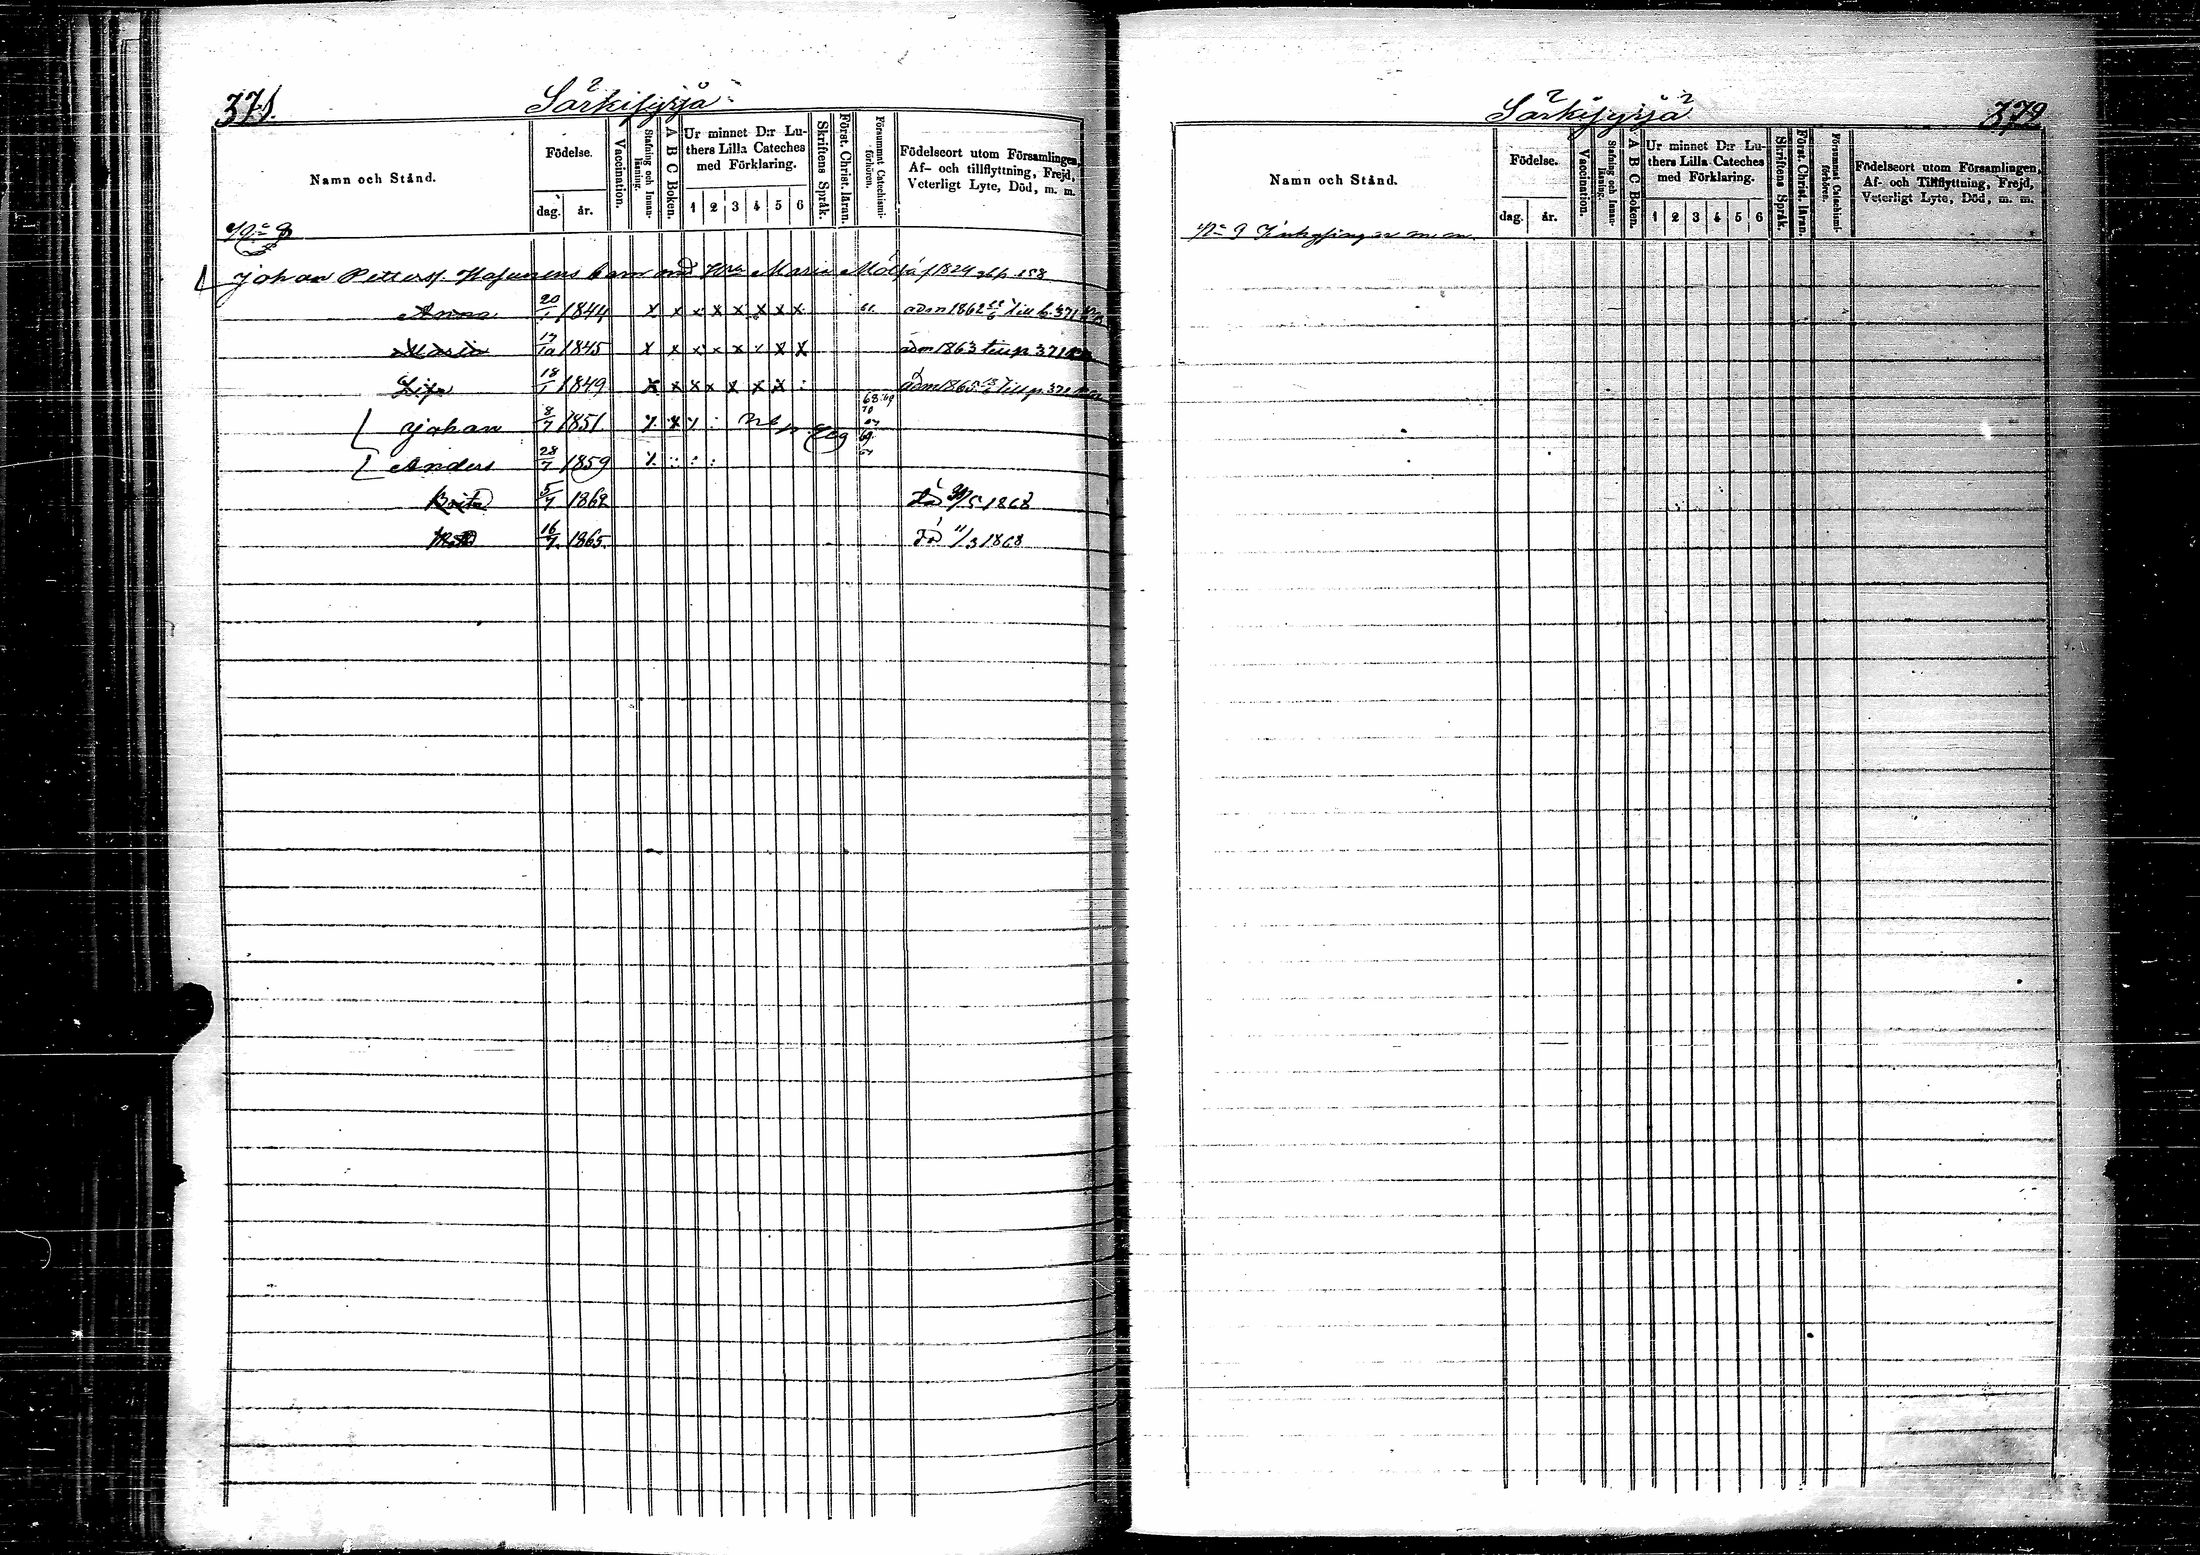 371.
Särkijyrjä
Namn och Stånd.
Födelse.
dag. år.
Vaccination.
Stafning och Innanläsning.
A B C Boken.
Ur minnet D:r Luthers Lilla Cateches med Förklaring.
1 2 3 4 5 6
Skriftens Språk.
Först. Christ. läran.
Försummat Catechismiförhören.
Födelseort utom Församlingen,
Af- och tillflyttning, Frejd,
Veterligt Lyte, Död, m. m.
No 8
Johan Petterss. barn med Maria f 1824
Anna 20/1 1844 x x x x x x x x 61. adm 1862 Till p. 371
Maria 17/10 1845 x x x x x x x x adm 1863 till p 371
Lisa 18/1 1849 x x x x x x x : adm 1865 Till p 371
Johan 8/7 1851. 68. 69 70
Anders 28/7 1859
Brita 5/7 1862 Död 30/5 1868
16/7 1865. Död 11/3 1868
Särkijyrjä
372
Namn och Stånd.
Födelse.
dag. år.
Vaccination.
Stafning och Innanläsning.
A B C Boken.
Ur minnet D:r Luthers Lilla Cateches med Förklaring.
1 2 3 4 5 6
Skriftens Språk.
Först. Christ. läran.
Försummat Catechismiförhören.
Födelseort utom Församlingen,
Af- och Tillflyttning, Frejd,
Veterligt Lyte, Död, m. m.
No 9